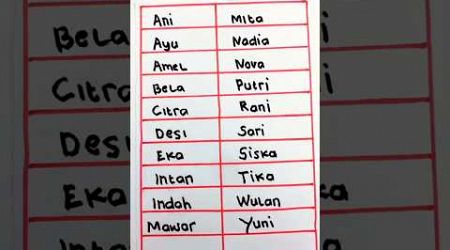 Ani Mita
Ayu Nadia
Amel Nova
Bela Putri
Citra Rani
Desi Sari
Eka Siska
Intan Tika
Indah Wulan
Mawar Yuni
Bela
Citra
Desi
Eka